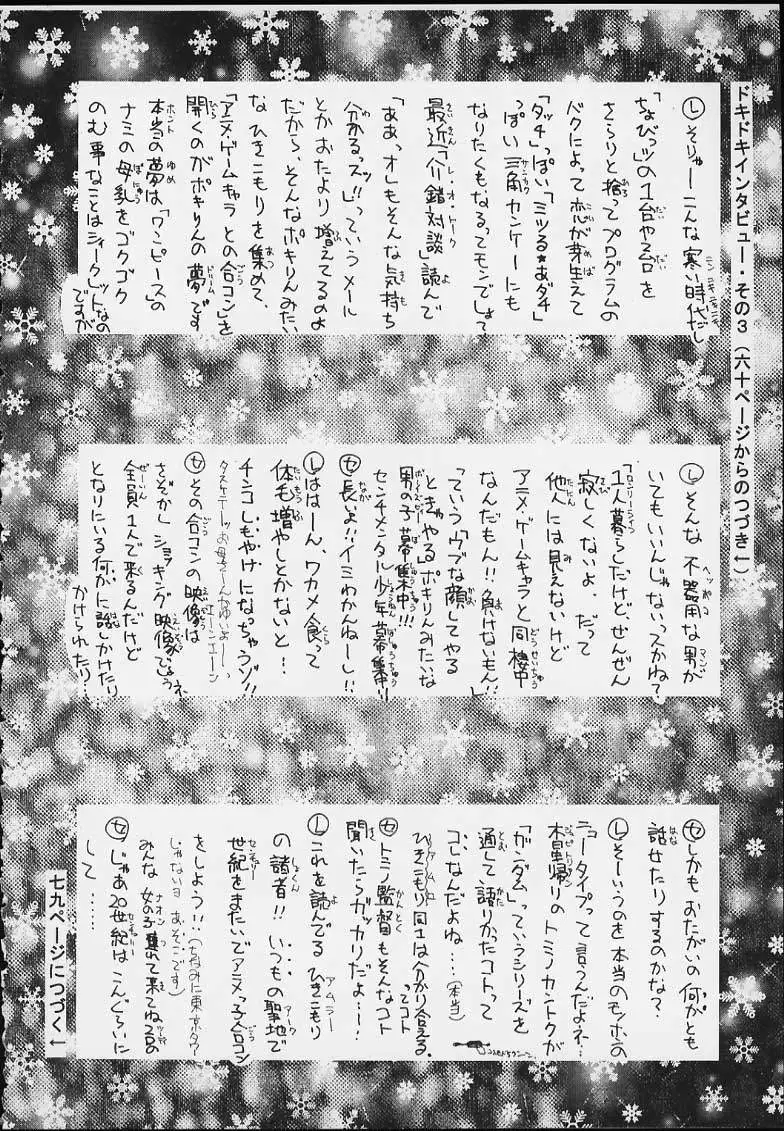 ドキドキインタビュー・その3（六十ページからのつづき↓）
Ⓛそりゃーこんな寒い時代だし
「なびっツ」の1台や2台を
さらりと捨ってプログラムの
バクによって恋が芽生えて
「タッチ」っぽい「ミツる★あダチ」
っぽい三角カンケーにも
なりたくもなるってモンでしょて
最近「介錯対談」読んで
「ああっオレもそんな気持ち
分かるっスッ!!」っていうメール
とかおたより増えてるのよ
だから、そんなポキりんみたい
なひきこもりを集めて、
「アニメ・ゲームキャラとの合コン」を
開くのがポキりんの夢です
本当の夢は「ワンピース」の
ナミの母乳をゴクゴク
のむ事なことはシィークレットなの
ですが
Ⓛそんな不器用な男が
いてもいいんじゃないってかね?
1人暮らしだけど、ぜんぜん
寂しくないよ。だって
他人には見えないけど
アニメ・ゲームキャラと同棲中
なんだもん!!負けないもん!!」
っていうウブな顔してやる
ときゃやるポキりんみたいな
男の子募集中!!!
センチメンタル少年募集中!!
Ⓢ長いよ!!イミわかんねーし!!
Ⓛははーん、ワカメ食って
体毛増やしとかないと!・
チンコしもやけになっちゃうゾ!!
Ⓢその合コンの映像は
さぞかしショッキング映像でしょうネ、
全員1人で来るんだけど
となりにいる何かに話しかけたり
かけられたり…
Ⓢしかもおたがいの何かとも
話せたりするのかな?
Ⓛそーいうのを本当のモンホの
ニュータイプって言うんだよネ…
木星帰りのトミノカントクが
「ガンダム」っていうシリーズを
通して語りかったコトって
コレなんだよね…(本当)
ひきこもり同士は分かり合える。
ってコト
Ⓢトミノ監督もそんなコト
聞いたらガッカリだよ…!
Ⓛこれを読んでるひきこもり
の諸君!!いつもの聖地で
世紀をまたいでアニメっ子合コン
をしよう!!(ちなみに東京タワー
じゃないヨあそこです)
みんな女の子連れて来てね
Ⓢじゃあ20世紀はこんぐらいに
して……
七九ページにつづく↓